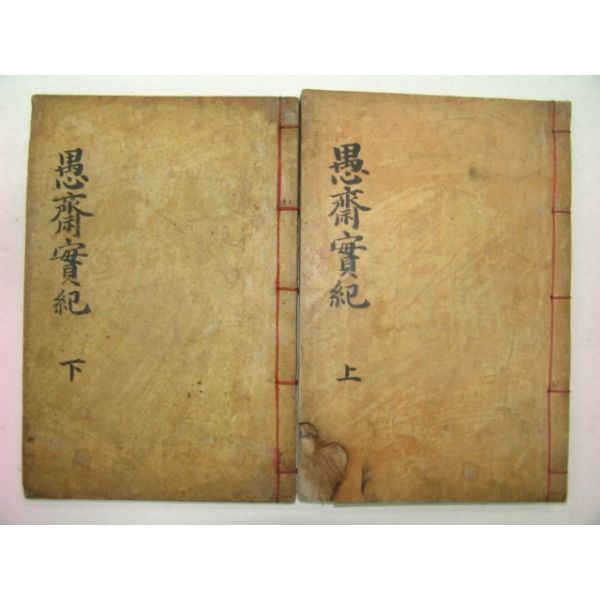 愚齋實紀 上
愚齋實紀 下